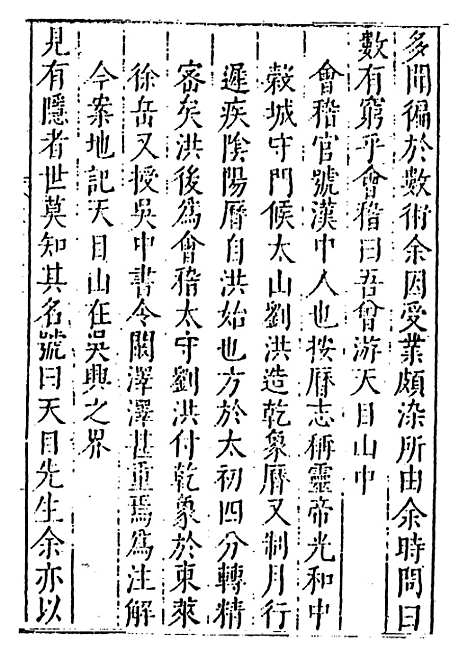 多聞徧於數術余因受業頗染所由余時問曰
數有窮乎會稽曰吾曾游天目山中
會稽官號漢中人也按曆志稱靈帝光和中
榖城守門候太山劉洪造乾象曆又制月行
遲疾隂陽曆自洪始也方於太初四分轉精
宻矣洪後爲會稽太守劉洪付乾象於東萊
徐岳又授吳中書令闞澤澤甚重焉爲注解
今案地記天目山在吳興之界
見有隱者世莫知其名號曰天目先生余亦以